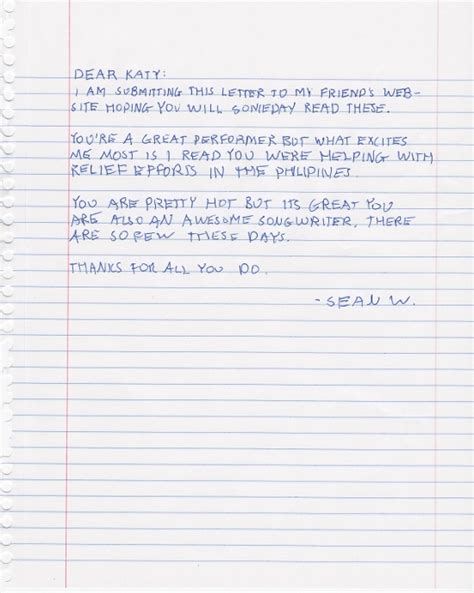 DEAR KATY:
I AM SUBMITTING THIS LETTER TO MY FRIEND'S WEB-
SITE HOPING YOU WILL SOMEDAY READ THESE.
YOU'RE A GREAT PERFORMER BUT WHAT EXCITES
ME MOST IS I READ YOU WERE HELPING WITH
RELIEF EFFORTS IN THE PHILIPINES.
YOU ARE PRETTY HOT BUT ITS GREAT YOU
ARE ALSO AN AWESOME SONGWRITER, THERE
ARE SO FEW THESE DAYS.
THANKS FOR ALL YOU DO.
- SEAN W.